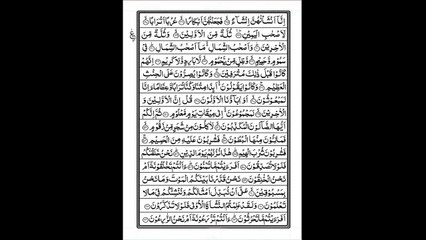 اِنَّاۤ اَنْشَاْنٰهُنَّ اِنْشَآءً ۙ فَجَعَلْنٰهُنَّ اَبْكَارًا ۙ عُرُبًا اَتْرَابًا ۙ
لِّاَصْحٰبِ الْيَمِيْنِ ۙ ثُلَّةٌ مِّنَ الْاَوَّلِيْنَ ۙ وَثُلَّةٌ مِّنَ
الْاٰخِرِيْنَ ۙ وَاَصْحٰبُ الشِّمَالِ ۙ مَاۤ اَصْحٰبُ الشِّمَالِ ۙ فِيْ
سَمُوْمٍ وَّحَمِيْمٍ ۙ وَّظِلٍّ مِّنْ يَّحْمُوْمٍ ۙ لَّا بَارِدٍ وَّلَا كَرِيْمٍ ۙ اِنَّهُمْ
كَانُوْا قَبْلَ ذٰلِكَ مُتْرَفِيْنَ ۙ وَكَانُوْا يُصِرُّوْنَ عَلَى الْحِنْثِ
الْعَظِيْمِ ۙ وَكَانُوْا يَقُوْلُوْنَ ۙ اَئِذَا مِتْنَا وَكُنَّا تُرَابًا وَّعِظَامًا ءَاِنَّا
لَمَبْعُوْثُوْنَ ۙ اَوَاٰبَآؤُنَا الْاَوَّلُوْنَ ۙ قُلْ اِنَّ الْاَوَّلِيْنَ وَ
الْاٰخِرِيْنَ ۙ لَمَجْمُوْعُوْنَ ۙ اِلٰى مِيْقَاتِ يَوْمٍ مَّعْلُوْمٍ ۙ ثُمَّ اِنَّكُمْ
اَيُّهَا الضَّآلُّوْنَ الْمُكَذِّبُوْنَ ۙ لَاٰكِلُوْنَ مِنْ شَجَرٍ مِّنْ زَقُّوْمٍ ۙ
فَمَالِئُوْنَ مِنْهَا الْبُطُوْنَ ۙ فَشٰرِبُوْنَ عَلَيْهِ مِنَ الْحَمِيْمِ ۙ
فَشٰرِبُوْنَ شُرْبَ الْهِيْمِ ۙ هٰذَا نُزُلُهُمْ يَوْمَ الدِّيْنِ ۙ نَحْنُ خَلَقْنٰكُمْ
فَلَوْلَا تُصَدِّقُوْنَ ۙ اَفَرَءَيْتُمْ مَّا تُمْنُوْنَ ۙ ءَاَنْتُمْ تَخْلُقُوْنَهٗۤ اَمْ
نَحْنُ الْخٰلِقُوْنَ ۙ نَحْنُ قَدَّرْنَا بَيْنَكُمُ الْمَوْتَ وَمَا نَحْنُ
بِمَسْبُوْقِيْنَ ۙ عَلٰۤى اَنْ نُّبَدِّلَ اَمْثَالَكُمْ وَنُنْشِئَكُمْ فِيْ مَا لَا
تَعْلَمُوْنَ ۙ وَلَقَدْ عَلِمْتُمُ النَّشْاَةَ الْاُوْلٰى فَلَوْلَا تَذَكَّرُوْنَ ۙ
اَفَرَءَيْتُمْ مَّا تَحْرُثُوْنَ ۙ ءَاَنْتُمْ تَزْرَعُوْنَهٗۤ اَمْ نَحْنُ الزّٰرِعُوْنَ ۙ